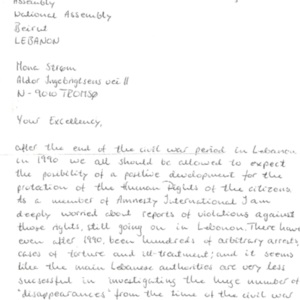 Assembly
National Assembly
Beirut
LEBANON
Mona Strøm
N-9010 TROMSØ
Your Excellency,
after the end of the civil war period in Lebanon
in 1990 we all should be allowed to expect
the posibility of a positive development for the
protation of the Human Rights of the citizens.
As a member of Amnesty International I am
deeply worried about reports of violations against
those rights, still going on in Lebanon. There have
even after 1990, been hundreds of arbitrary arrests,
cases of torture and ill-treatment; and it seems
like the main Lebanese authorities are very less
successful in investigating the huge number of
"disappearances" from the time of the civil war